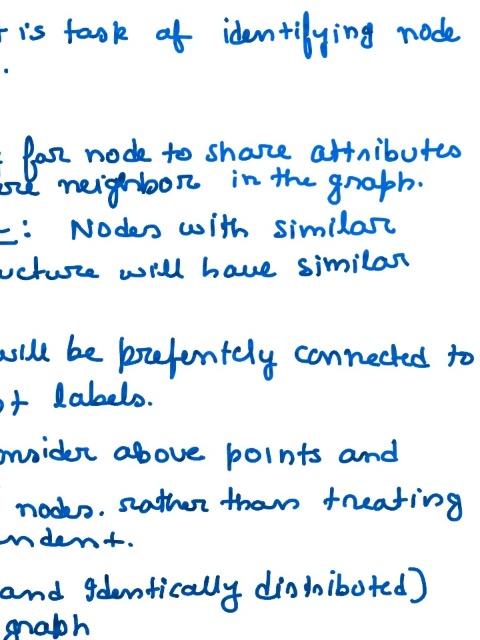 is task of identifying node
.
for node to share attributes
neighbor in the graph.
: Nodes with similar
ucture will have similar
will be prefentely connected to
labels.
onsider above points and
nodes. rather than treating
ndent.
and Identically distributed)
graph